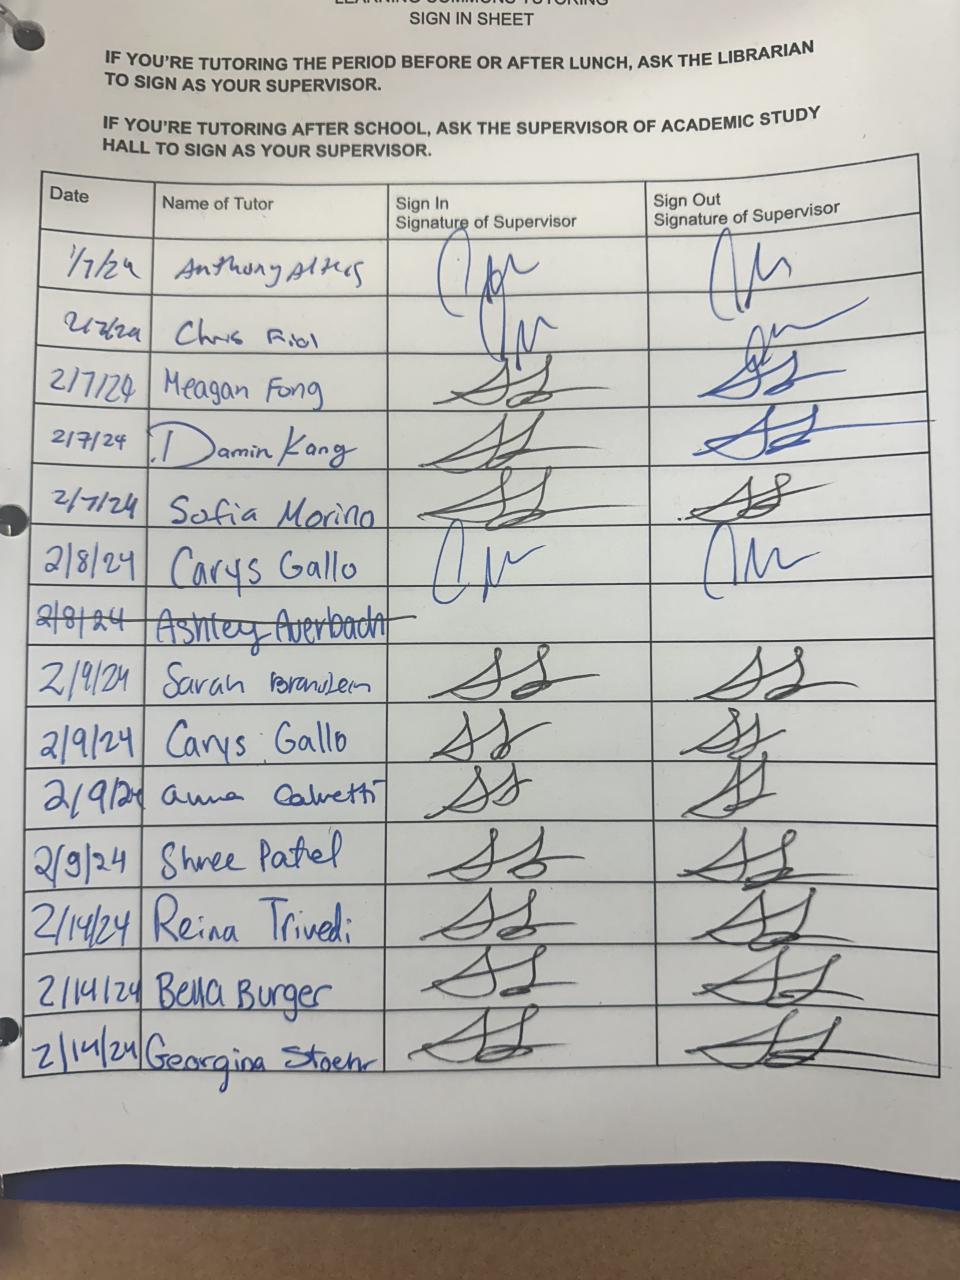 LEARNING COMMONS TUTORING
SIGN IN SHEET
IF YOU'RE TUTORING THE PERIOD BEFORE OR AFTER LUNCH, ASK THE LIBRARIAN
TO SIGN AS YOUR SUPERVISOR.
IF YOU'RE TUTORING AFTER SCHOOL, ASK THE SUPERVISOR OF ACADEMIC STUDY
HALL TO SIGN AS YOUR SUPERVISOR.
Date Name of Tutor Sign In Signature of Supervisor Sign Out Signature of Supervisor
1/7/24 Anthony
2/7/24 Chris
2/7/24 Meagan Fong
2/7/24 Damin Kang
2/7/24 Sofia Morino
2/8/24 Carys Gallo
2/8/24 Ashley Averbach
2/9/24 Sarah
2/9/24 Carys Gallo
2/9/24 Anna Calvetti
2/9/24 Shree Patel
2/14/24 Reina Trivedi
2/14/24 Bella Burger
2/14/24 Georgina Stoehr